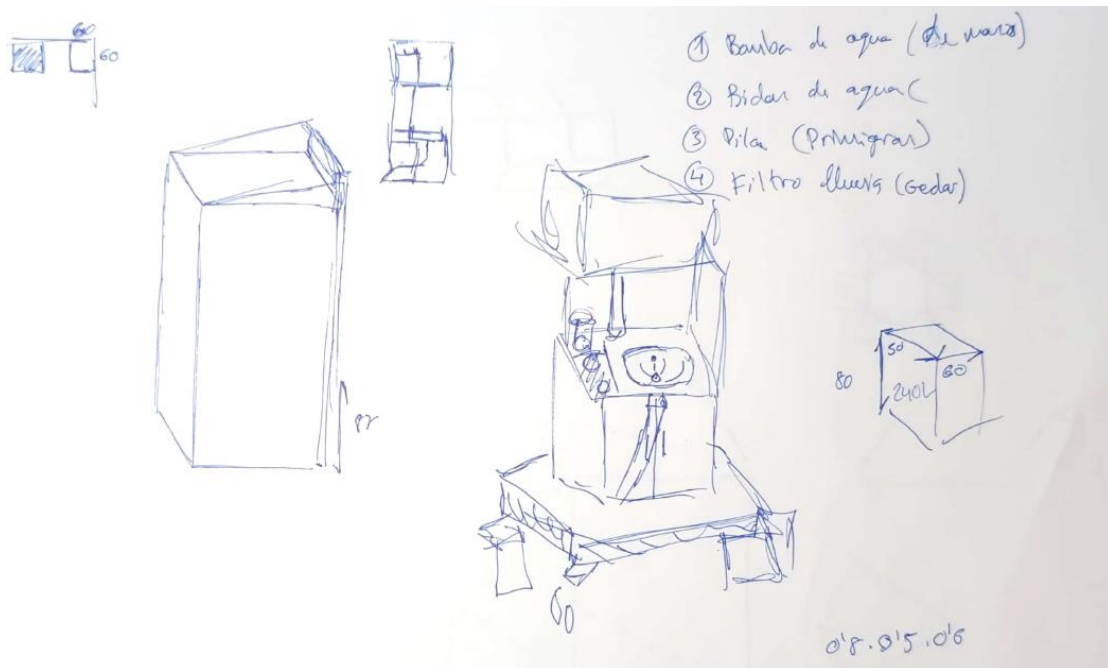 60
60
① Bomba de agua (de mano)
② Bidon de agua (
③ Pila (
④ Filtro lluvia (Gedar)
50
60
80
240L
60
0'8.0'5.0'6